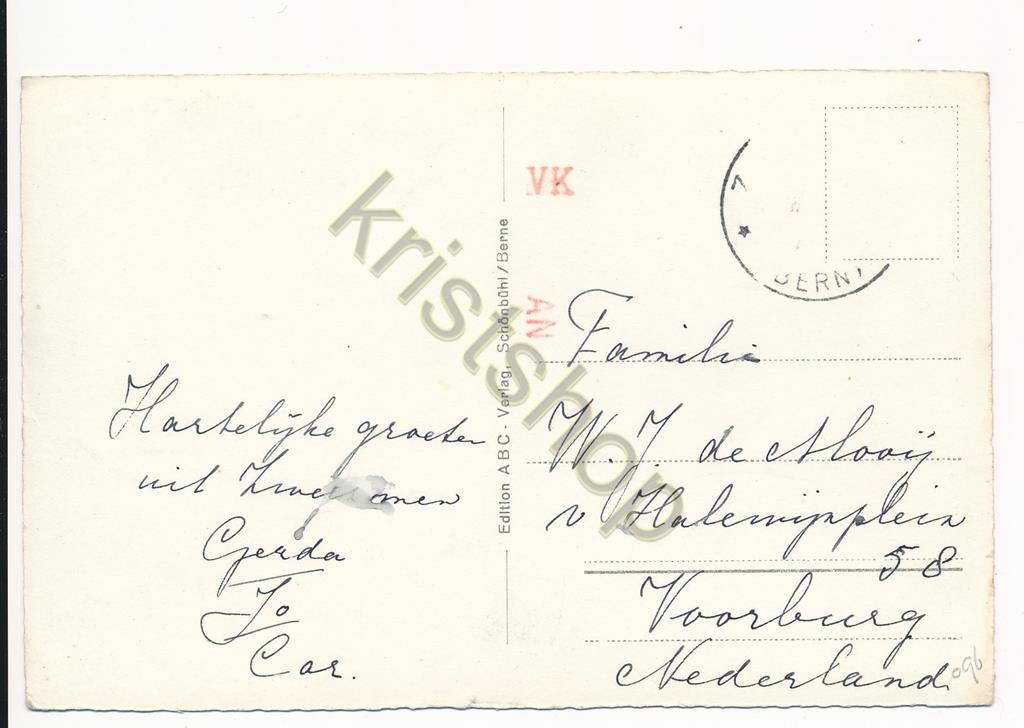 Hartelijke groeten
uit
Gerda
Jo
Cor.
Edition ABC - Verlag, Schönbühl/Berne
VK
AN
BERN
Familie
W. J. de Mooij
v Halewijnplein
58
Voorburg
Nederland
096
kristshop